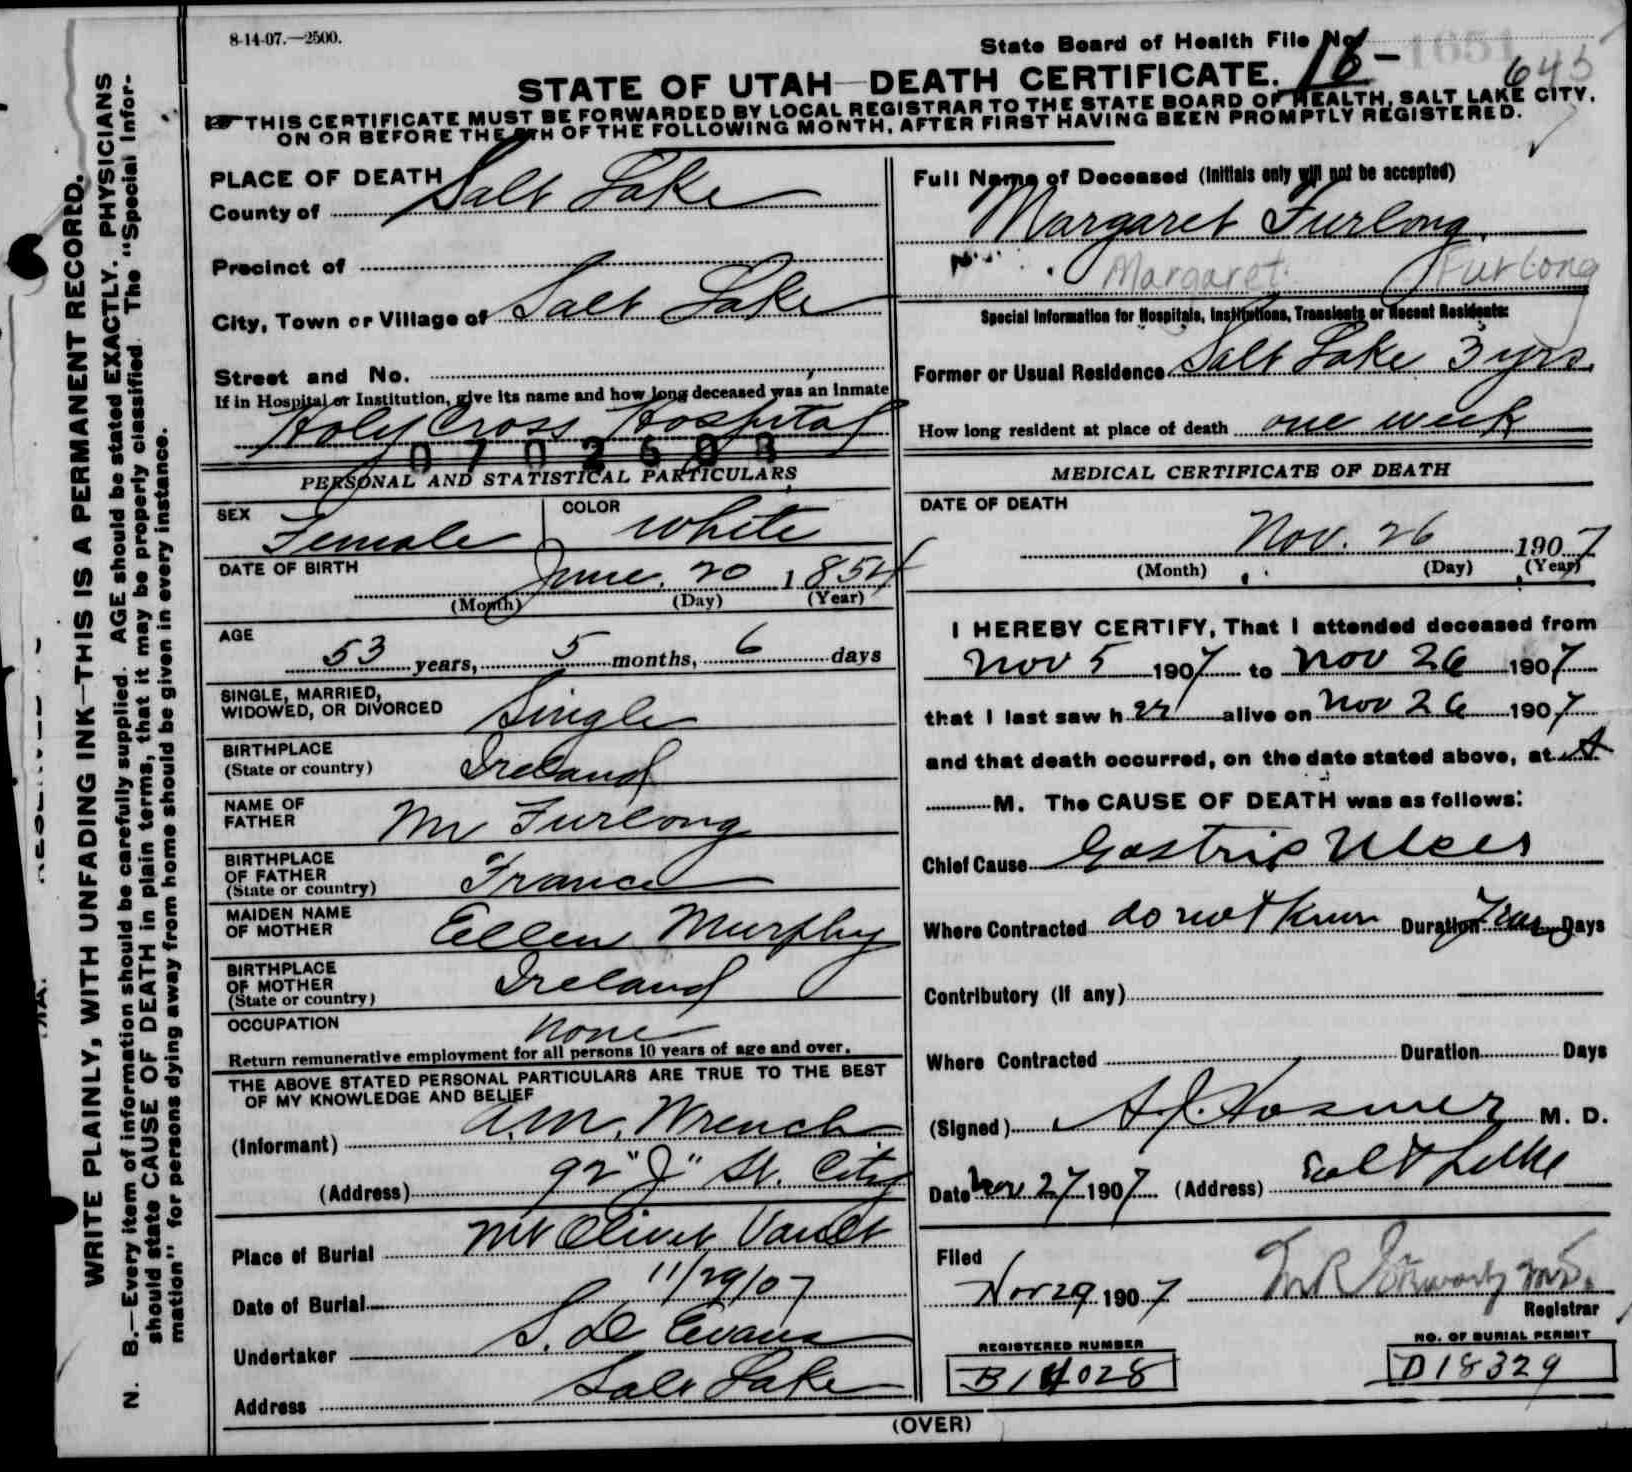 8-14-07.—2500.
State Board of Health File No. 18-
645
STATE OF UTAH—DEATH CERTIFICATE.
THIS CERTIFICATE MUST BE FORWARDED BY LOCAL REGISTRAR TO THE STATE BOARD OF HEALTH, SALT LAKE CITY,
ON OR BEFORE THE 5TH OF THE FOLLOWING MONTH, AFTER FIRST HAVING BEEN PROMPTLY REGISTERED.
WRITE PLAINLY, WITH UNFADING INK—THIS IS A PERMANENT RECORD.
N. B.—Every item of information should be carefully supplied. AGE should be stated EXACTLY. PHYSICIANS
should state CAUSE OF DEATH in plain terms, that it may be properly classified. The "Special Infor-
mation" for persons dying away from home should be given in every instance.
PLACE OF DEATH
County of Salt Lake
Precinct of
City, Town or Village of Salt Lake
Street and No.
If in Hospital or Institution, give its name and how long deceased was an Inmate
Holy Cross Hospital
0702608
PERSONAL AND STATISTICAL PARTICULARS
SEX Female
COLOR White
DATE OF BIRTH June 20 1854
(Month) (Day) (Year)
AGE
53 years, 5 months, 6 days
SINGLE, MARRIED,
WIDOWED, OR DIVORCED Single
BIRTHPLACE
(State or country) Ireland
NAME OF
FATHER Mr Furlong
BIRTHPLACE
OF FATHER
(State or country) France
MAIDEN NAME
OF MOTHER Ellen Murphy
BIRTHPLACE
OF MOTHER
(State or country) Ireland
OCCUPATION none
Return remunerative employment for all persons 10 years of age and over.
THE ABOVE STATED PERSONAL PARTICULARS ARE TRUE TO THE BEST
OF MY KNOWLEDGE AND BELIEF
(Informant) A.M. Wrench
(Address) 92 "J" St. City
Place of Burial Mt Olivet Vault
Date of Burial 11/29/07
Undertaker S. D Evans
Address Salt Lake
Full Name of Deceased (Initials only will not be accepted)
Margaret Furlong.
Margaret Furlong
Special Information for Hospitals, Institutions, Transients or Recent Residents:
Former or Usual Residence Salt Lake 3 yrs.
How long resident at place of death one week
MEDICAL CERTIFICATE OF DEATH
DATE OF DEATH
Nov. 26 1907
(Month) (Day) (Year)
I HEREBY CERTIFY, That I attended deceased from
Nov 5 1907 to Nov 26 1907
that I last saw her alive on Nov 26 1907
and that death occurred, on the date stated above, at A
M. The CAUSE OF DEATH was as follows:
Chief Cause Gastric Ulcer
Where Contracted do not know Duration Days
Contributory (If any)
Where Contracted Duration Days
(Signed) A. J. Hosmer M. D.
Date Nov 27 1907 (Address) Salt Lake
Filed
Nov 29 1907
Registrar
REGISTERED NUMBER
B14028
NO. OF BURIAL PERMIT
D18329
(OVER)